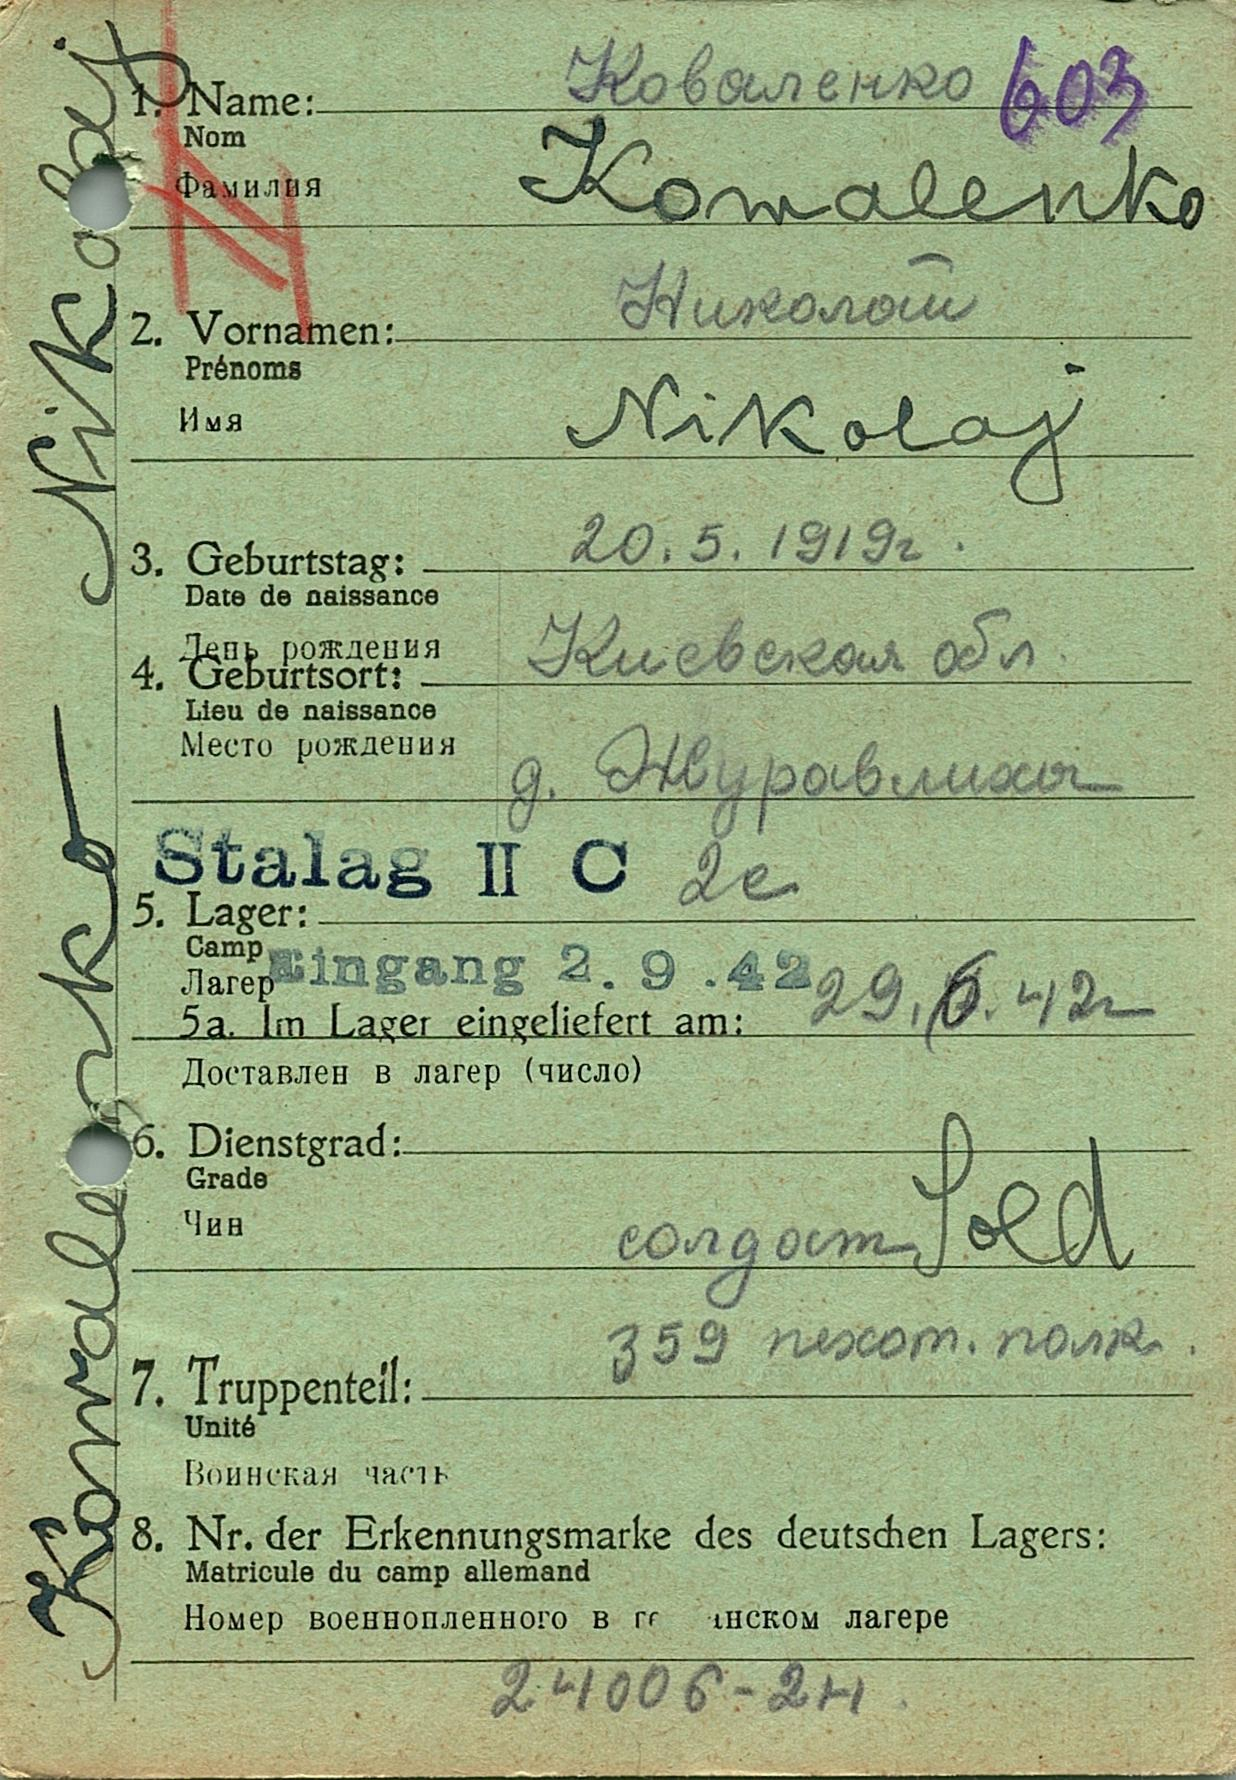 Коваленко 603
1. Name:
Nom
Фамилия
Kowalenko
Николай
2. Vornamen:
Prénoms
Имя
Nikolaj
20.5.1919г.
3. Geburtstag:
Date de naissance
День рождения
Киевская обл.
4. Geburtsort:
Lieu de naissance
Место рождения
д. Журавлиха
Stalag II C 2c
5. Lager:
Camp
Лагер
Eingang 2.9.42
29.6.42г
5a. Im Lager eingeliefert am:
Доставлен в лагер (число)
6. Dienstgrad:
Grade
Чин
солдат Sold
359 пехот. полк.
7. Truppenteil:
Unité
Воинская часть
8. Nr. der Erkennungsmarke des deutschen Lagers:
Matricule du camp allemand
Номер военнопленного в ге нском лагере
24006-2H.
Kowalenko Nikolaj